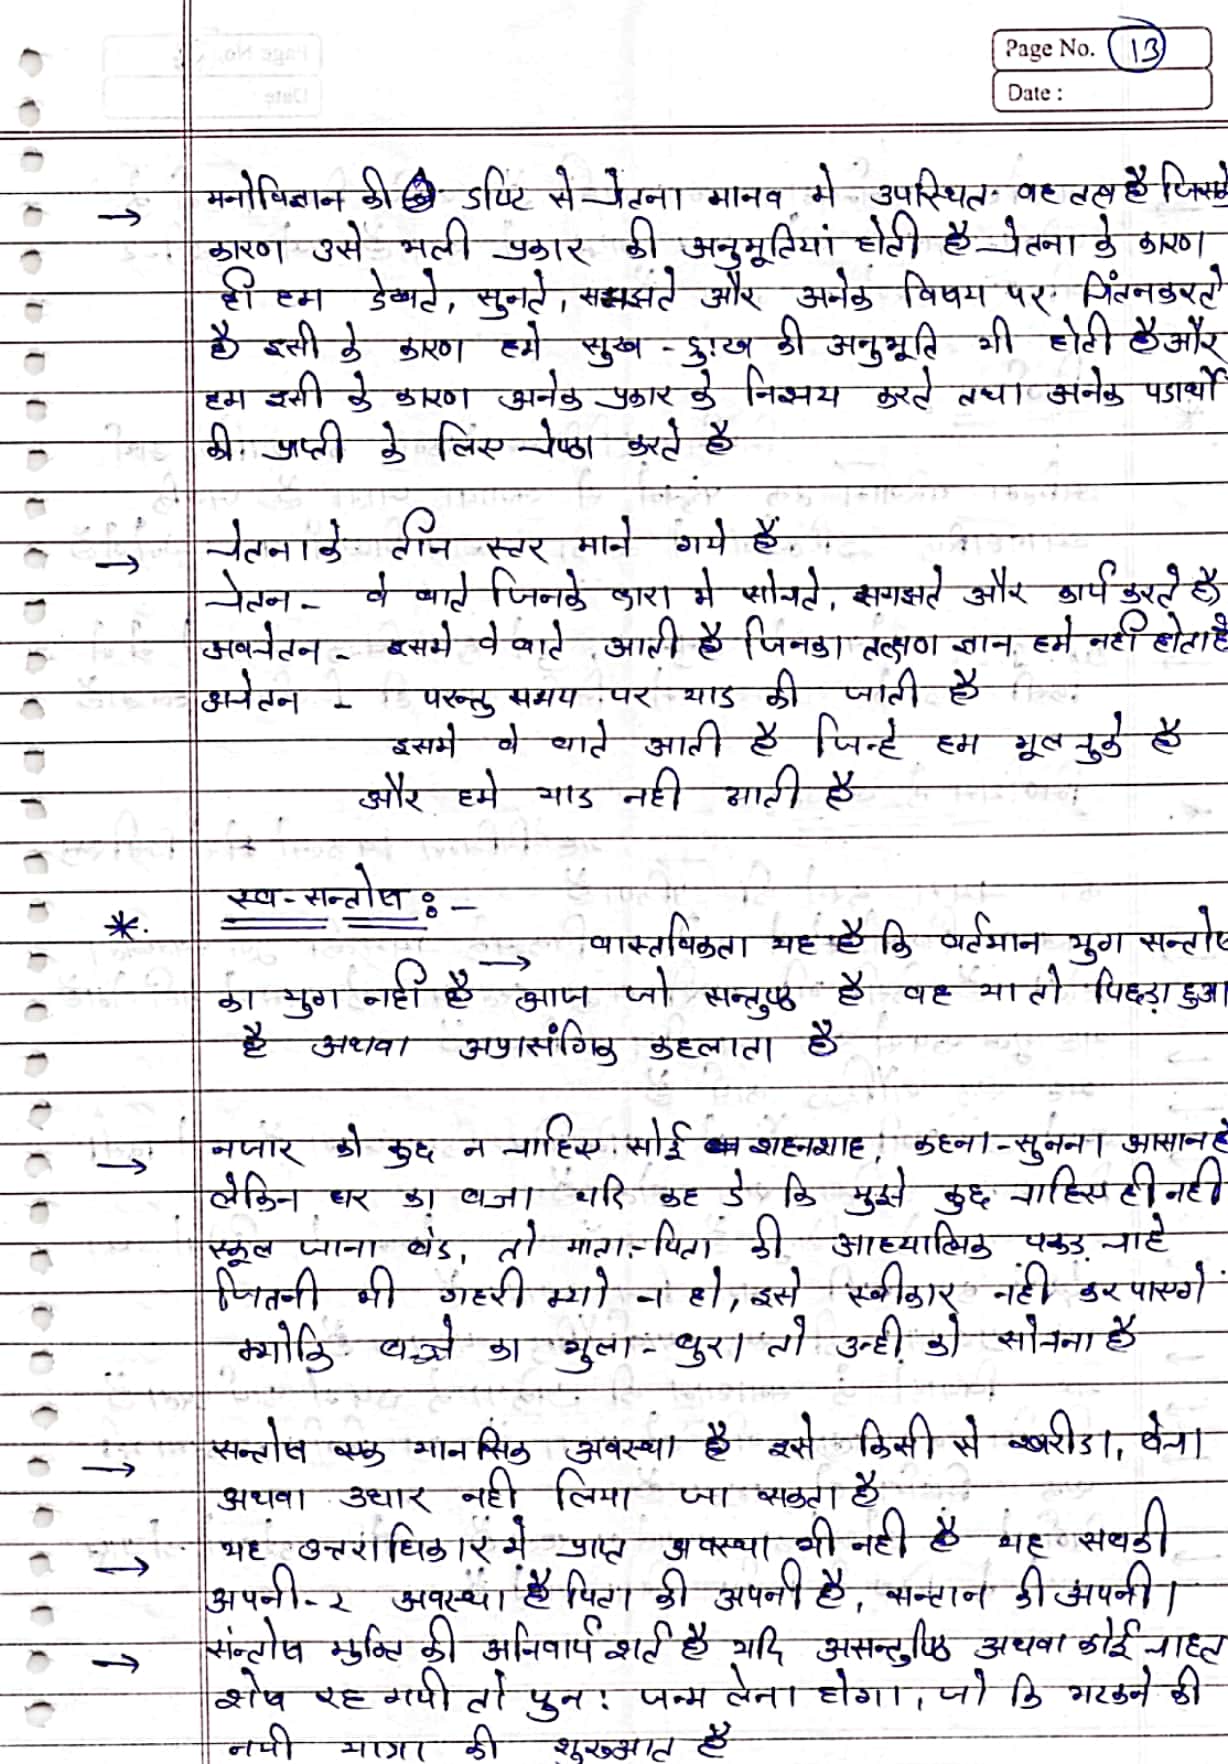 Page No. 13
Date :
मनोविज्ञान की दृष्टि से चेतना मानव मे उपस्थित वह तत्व है जिसके
कारण उसे भली प्रकार की अनुभूतियां होती है चेतना के कारण
ही हम देखते, सुनते, समझते और अनेक विषय पर चिंतन करते
है इसी के कारण हमे सुख - दुःख की अनुभूति भी होती है और
हम इसी के कारण अनेक प्रकार के निश्चय करते तथा अनेक पदार्थो
की प्राप्ती के लिए चेष्ठा करते है
→ चेतना के तीन स्तर माने गये हैं.
चेतन - वे बाते जिनके द्वारा मे सोचते, समझते और कार्य करते है
अवचेतन - इसमे वे बाते आती है जिनका तत्क्षण ज्ञान हमे नही होता है
अचेतन - परन्तु समय पर याद की जाती है
इसमे वे बाते आती है जिन्हे हम भूल चुके है
और हमे याद नही आती है
*. स्व-सन्तोष :-
→ वास्तविकता यह है कि वर्तमान युग सन्तोष
का युग नही है आज जो सन्तुष्ठ है वह या तो पिछड़ा हुआ
है अथवा अप्रासंगिक कहलाता है
→ को कुछ न चाहिए सोई शहनशाह, कहना-सुनना आसान है
लेकिन घर का यदि कह दे कि मुझे कुछ चाहिए ही नही
स्कूल जाना बंद, तो माता-पिता की आध्यात्मिक पकड़ चाहे
जितनी भी गहरी क्यो न हो, इसे स्वीकार नही कर पाएगे
क्योकि बच्चे का भला-बुरा तो उन्ही को सोचना है
→ सन्तोष एक मानसिक अवस्था है इसे किसी से खरीदा, बेचा
अथवा उधार नही लिया जा सकता है
→ यह उत्तराधिकार मे प्राप्त अवस्था भी नही है यह सबकी
अपनी-२ अवस्था है पिता की अपनी है, सन्तान की अपनी।
→ संन्तोष मुक्ति की अनिवार्य शर्त है यदि असन्तुष्ठि अथवा कोई चाहत
शेष रह गयी तो पुनः जन्म लेना होगा, जो कि भटकने की
नयी यात्रा की शुरुआत है